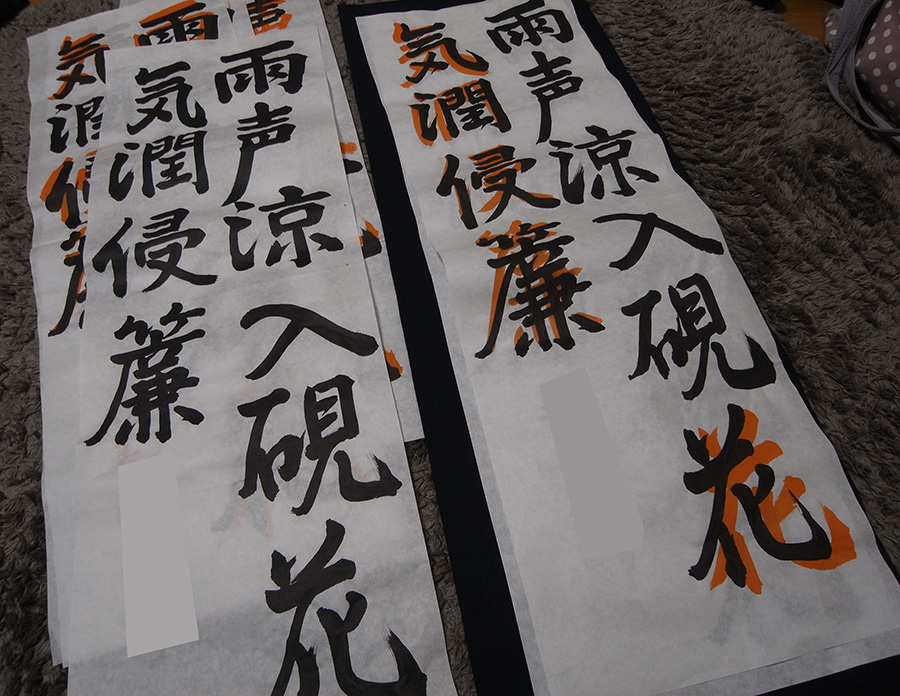 雨声涼入硯花
気潤侵簾
雨声涼入硯花
気潤侵簾